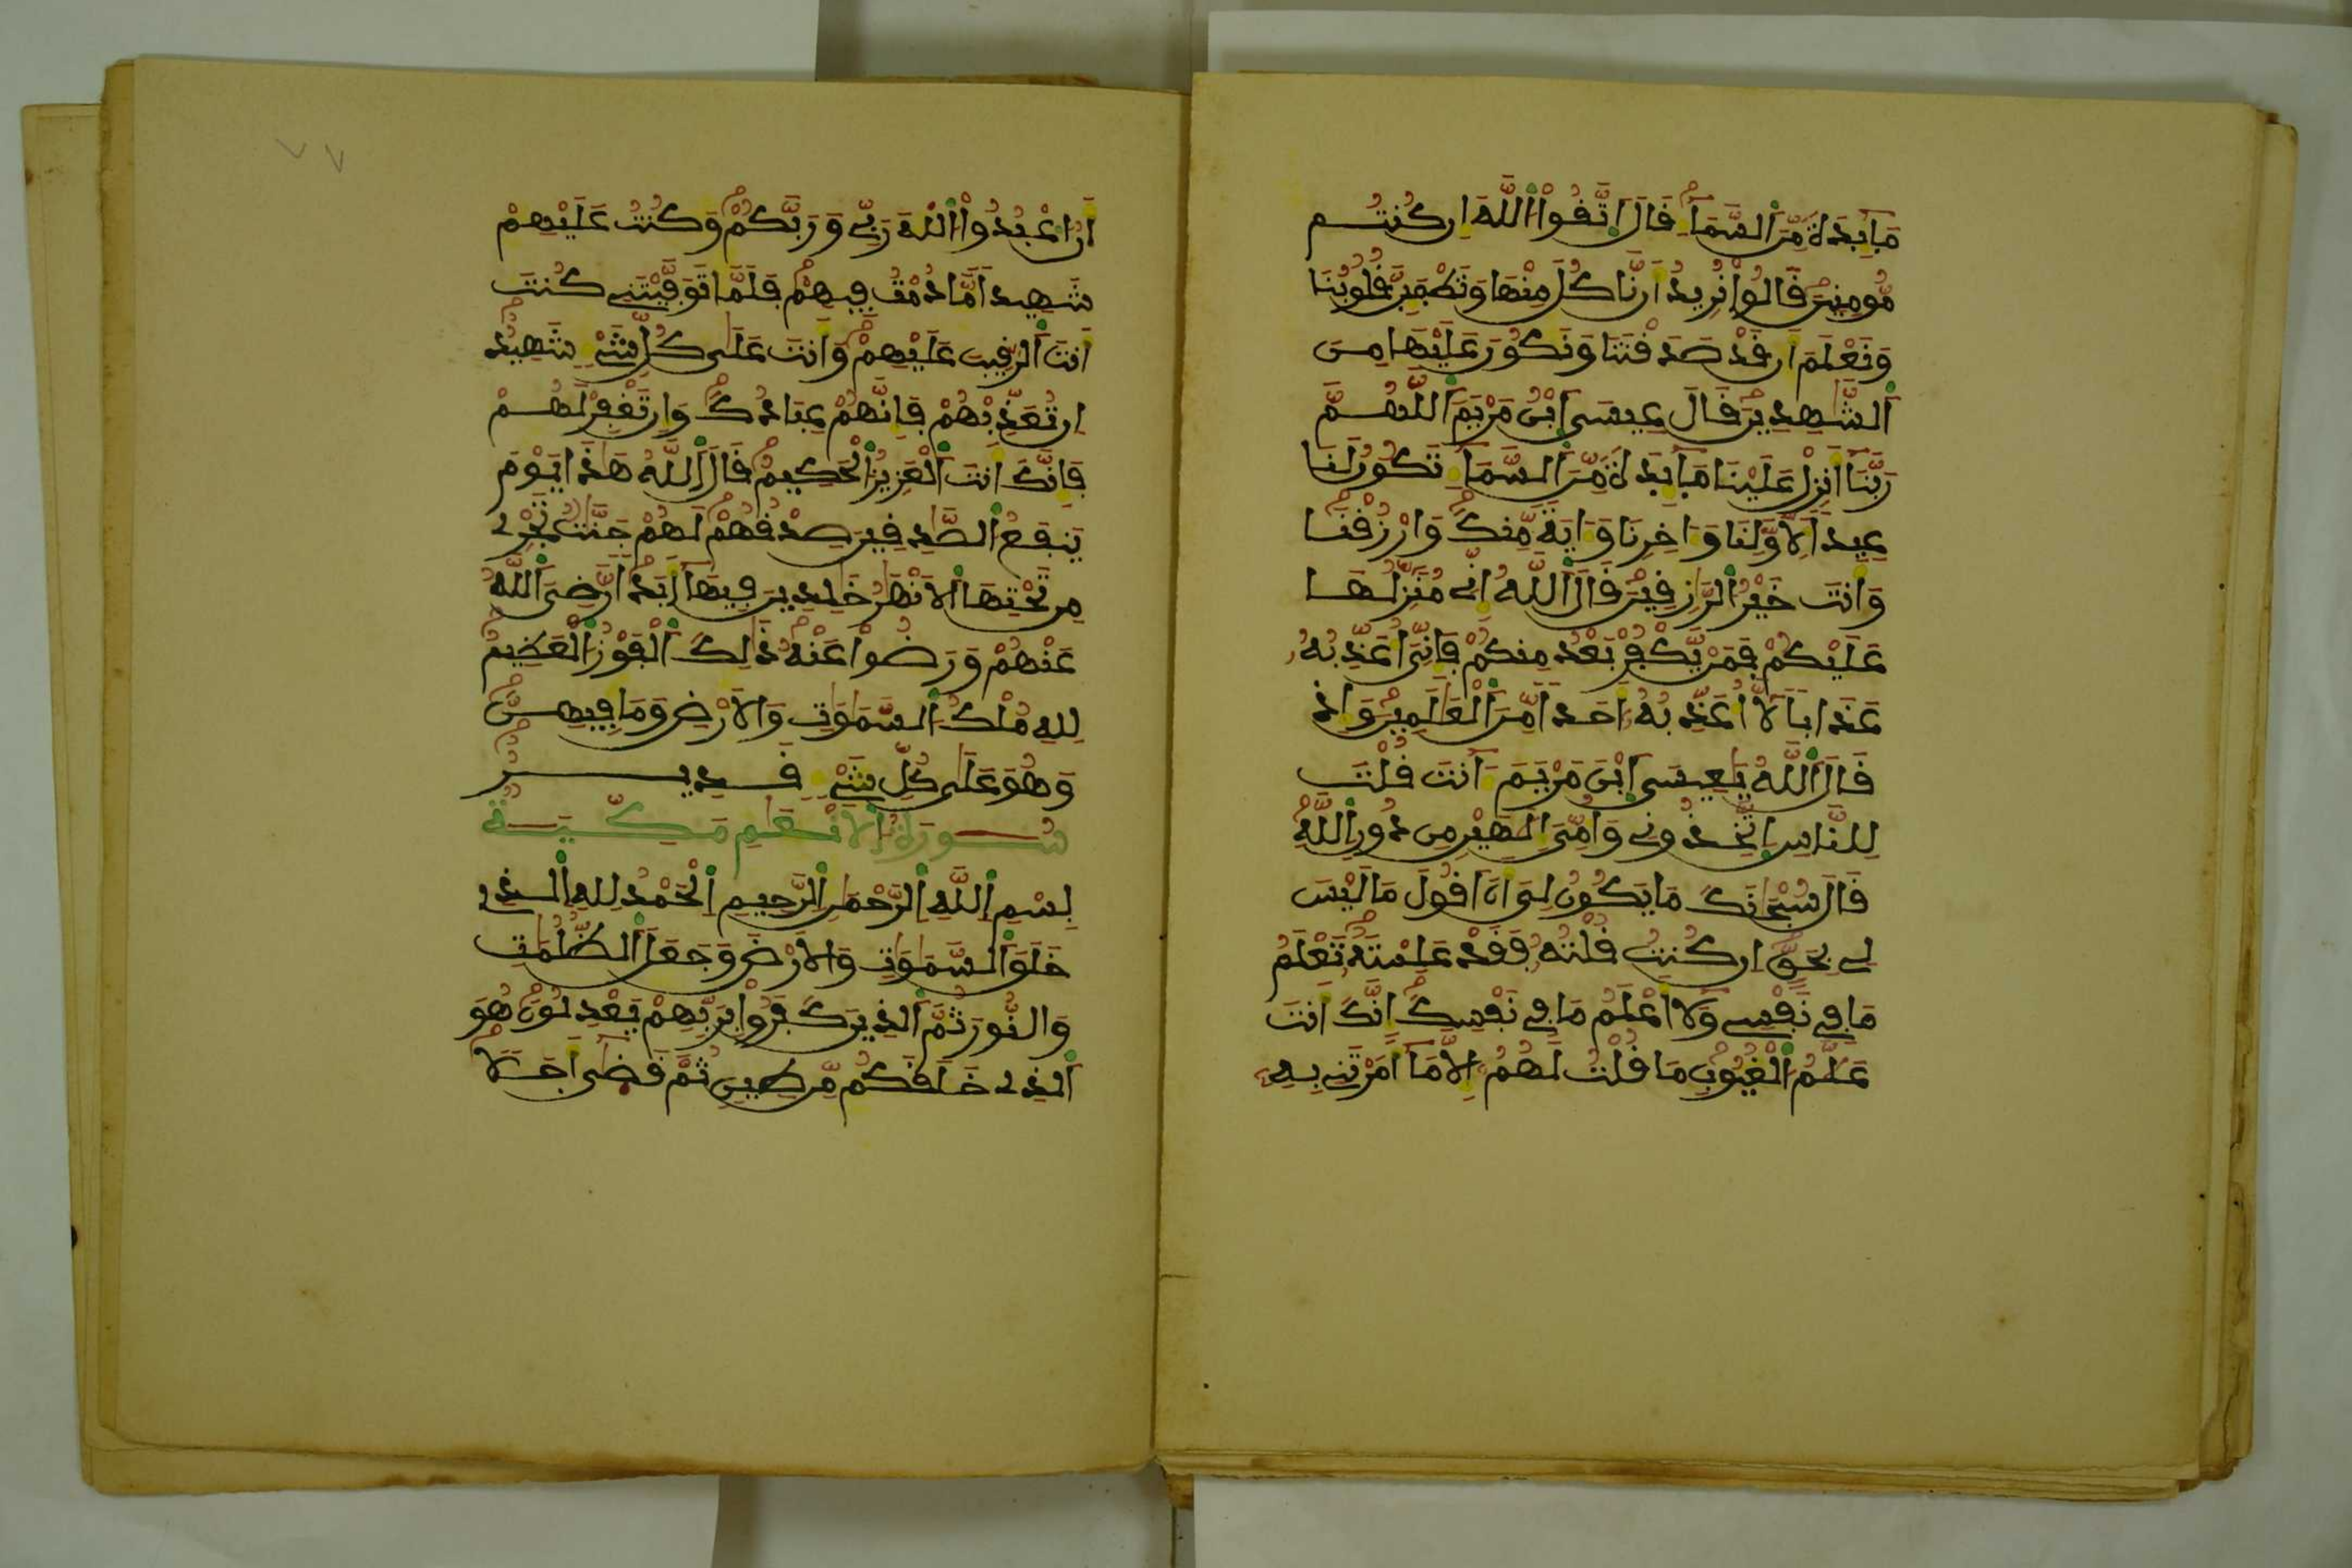 مَآيِدَةً مِّنَ اَلسَّمَآءِ قَالَ اَتَّقُواْ اُللَّهَ إِن كُنتُم
مُّومِنِينَ قَالُواْ نُرِيدُ أَن نَّاكُلَ مِنْهَا وَتَطْمَئِنَّ قُلُوبُنَا
وَنَعْلَمَ أَن قَدْ صَدَقْتَنَا وَنَكُونَ عَلَيْهَا مِنَ
اَلشَّٰهِدِينَ قَالَ عِيسَى اَبْنُ مَرْيَمَ اَللَّهُمَّ
رَبَّنَآ أَنزِلْ عَلَيْنَا مَآيِدَةً مِّنَ اَلسَّمَآءِ تَكُونُ لَنَا
عِيداً لِّأَوَّلِنَا وَءَاخِرِنَا وَءَايَةً مِّنكَ وَارْزُقْنَا
وَأَنتَ خَيْرُ اُلرَّٰزِقِينَ قَالَ اَللَّهُ إِنِّي مُنَزِّلُهَا
عَلَيْكُمْ فَمَن يَّكْفُرْ بَعْدُ مِنكُمْ فَإِنِّيَ أُعَذِّبُهُ
عَذَاباً لَّآ أُعَذِّبُهُ أَحَداً مِّنَ اَلْعَٰلَمِينَ وَإِذْ
قَالَ اَللَّهُ يَٰعِيسَى اَبْنَ مَرْيَمَ ءَآنتَ قُلْتَ
لِلنَّاسِ اِتَّخِذُونِي وَأُمِّيَ إِلَٰهَيْنِ مِن دُونِ اِللَّهِ
قَالَ سُبْحَٰنَكَ مَا يَكُونُ لِيَ أَنَ اَقُولَ مَا لَيْسَ
لِي بِحَقٍّ إِن كُنتُ قُلْتُهُ فَقَدْ عَلِمْتَهُ تَعْلَمُ
مَا فِي نَفْسِي وَلَآ أَعْلَمُ مَا فِي نَفْسِكَ إِنَّكَ أَنتَ
عَلَّٰمُ اُلْغُيُوبِ مَا قُلْتُ لَهُمُ إِلَّا مَآ أَمَرْتَنِي بِهِ
أَنُ اُعْبُدُواْ اُللَّهَ رَبِّي وَرَبَّكُمْ وَكُنتُ عَلَيْهِمْ
شَهِيداً مَّا دُمْتُ فِيهِمْ فَلَمَّا تَوَفَّيْتَنِي كُنتَ
أَنتَ اَلرَّقِيبَ عَلَيْهِمْ وَأَنتَ عَلَىٰ كُلِّ شَيْءٍ شَهِيدٌ
إِن تُعَذِّبْهُمْ فَإِنَّهُمْ عِبَادُكَ وَإِن تَغْفِرْ لَهُمْ
فَإِنَّكَ أَنتَ اَلْعَزِيزُ اُلْحَكِيمُ قَالَ اَللَّهُ هَٰذَا يَوْمَ
يَنفَعُ اُلصَّٰدِقِينَ صِدْقُهُمْ لَهُمْ جَنَّٰتٌ تَجْرِي
مِن تَحْتِهَا اَلْأَنْهَٰرُ خَٰلِدِينَ فِيهَآ أَبَداً رَّضِيَ اَللَّهُ
عَنْهُمْ وَرَضُواْ عَنْهُ ذَٰلِكَ اَلْفَوْزُ اُلْعَظِيمُ
لِلهِ مُلْكُ اُلسَّمَٰوَٰتِ وَالْأَرْضِ وَمَا فِيهِنَّ
وَهُوَ عَلَىٰ كُلِّ شَيْءٍ قَدِيرٌ
سُورَةُ اُلْأَنْعَٰمِ مَكِّيَّةٌ
بِسْمِ اِللَّهِ اِلرَّحْمَٰنِ اِلرَّحِيمِ اِلْحَمْدُ لِلهِ اِلذِي
خَلَقَ اَلسَّمَٰوَٰتِ وَالْأَرْضَ وَجَعَلَ اَلظُّلُمَٰتِ
وَالنُّورَ ثُمَّ اَلذِينَ كَفَرُواْ بِرَبِّهِمْ يَعْدِلُونَ هُوَ
اَلذِي خَلَقَكُم مِّن طِينٍ ثُمَّ قَضَىٰ أَجَلًا
٧٧